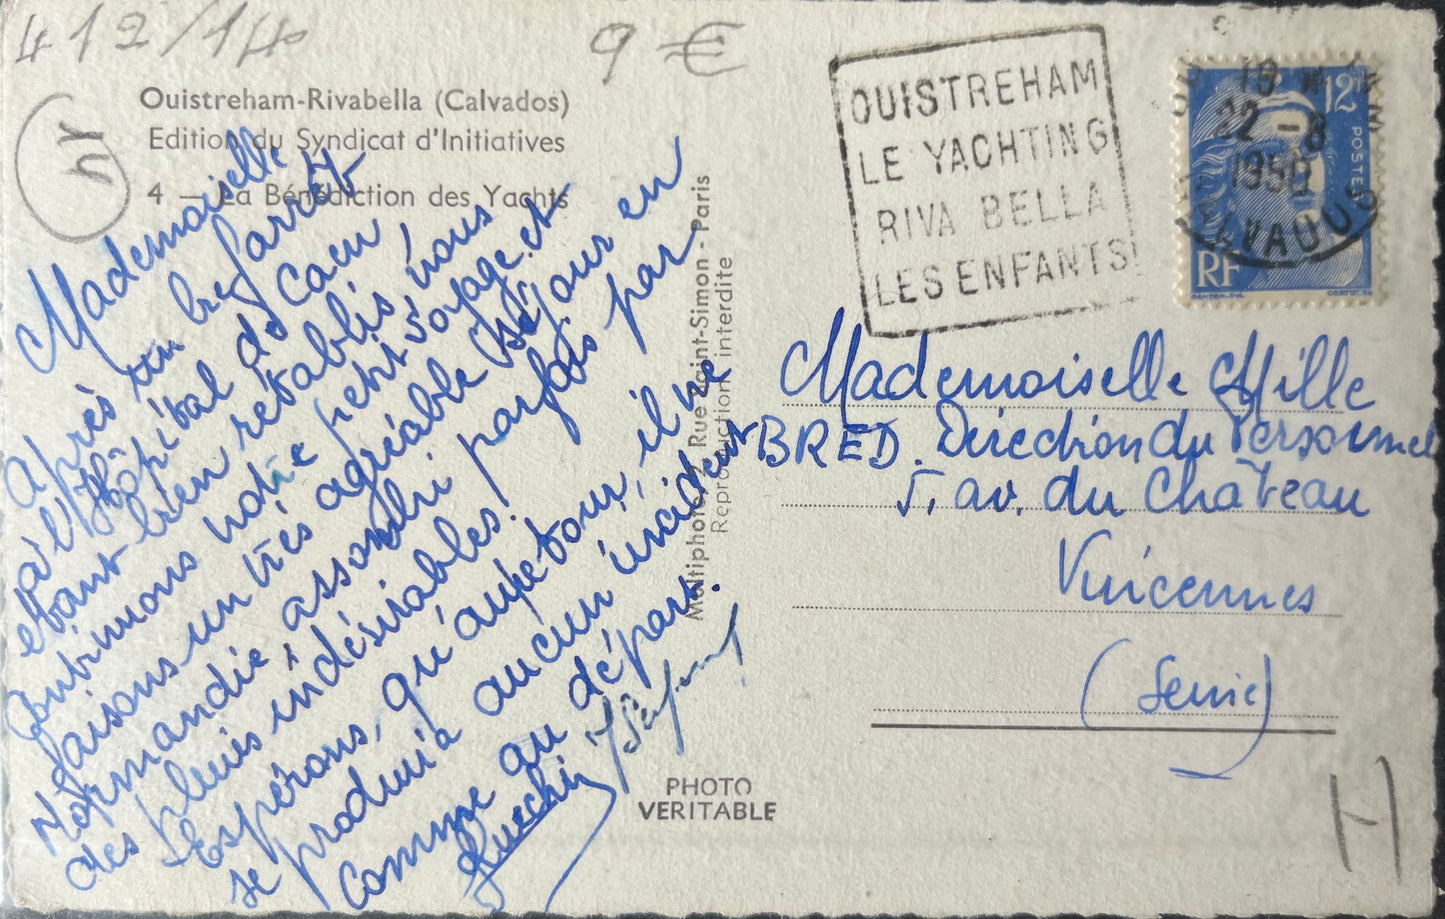 412/14
9 €
Ouistreham-Rivabella (Calvados)
Edition du Syndicat d'Initiatives
4 — La Bénédiction des Yachts
Mademoiselle
Après un bref arrêt
à l'Hôpital de Caen,
étant bien rétablis, nous
continuons notre petit voyage et
faisons un très agréable séjour en
Normandie, assombri parfois par
des pluies indésirables!
Espérons, qu'au retour, il ne
se produira aucun incident
comme au départ.
Multiphoto, Rue Saint-Simon - Paris
Reproduction interdite
PHOTO
VERITABLE
OUISTREHAM
LE YACHTING
RIVA BELLA
LES ENFANTS!
19 H
22 - 8
1950
CALVADOS
12F
POSTES
RF
GANDON. DEL.
CORTOT. SC
Mademoiselle Mille
BRED. Direction du Personnel
5, av. du Château
Vincennes
(Seine)
H